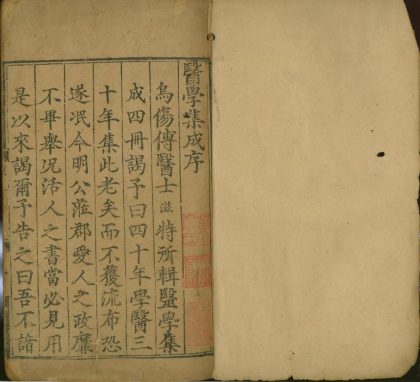 醫學集成序
烏傷傅醫士滋特所輯醫學集
成四冊謁予曰四十年學醫三
十年集此老矣而不獲流布恐
遂泯今明公蒞郡愛人之政靡
不畢舉況活人之書當必見用
是以來謁爾予告之曰吾不諳